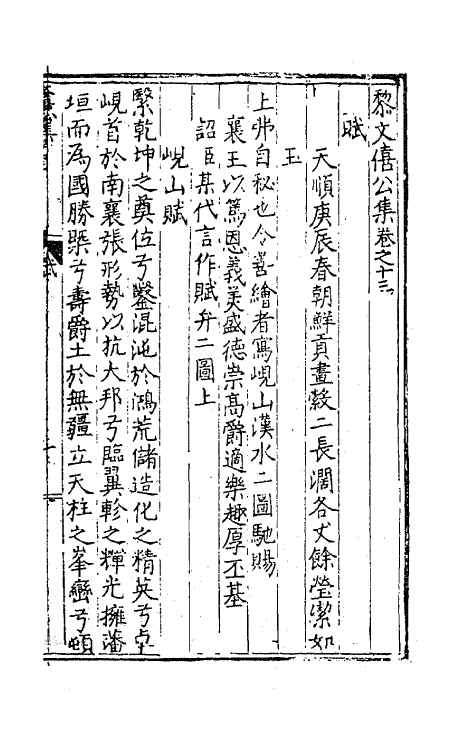 黎文僖公集卷之十三
賦
天順庚辰春朝鮮貢畫縠二長濶各丈餘瑩潔如
玉
上弗自秘也令善繪者寫峴山漢水二圖馳賜
襄王以篤恩義美盛德崇高爵適樂趣厚丕基
詔臣某代言作賦弁二圖上
峴山賦
繄乾坤之奠位兮鑿混沌於鴻荒儲造化之精英兮卓
峴首於南襄張形勢以抗大邦兮臨翼軫之輝光擁藩
垣而為國勝槩兮壽爵土於無疆立天柱之峯巒兮頓